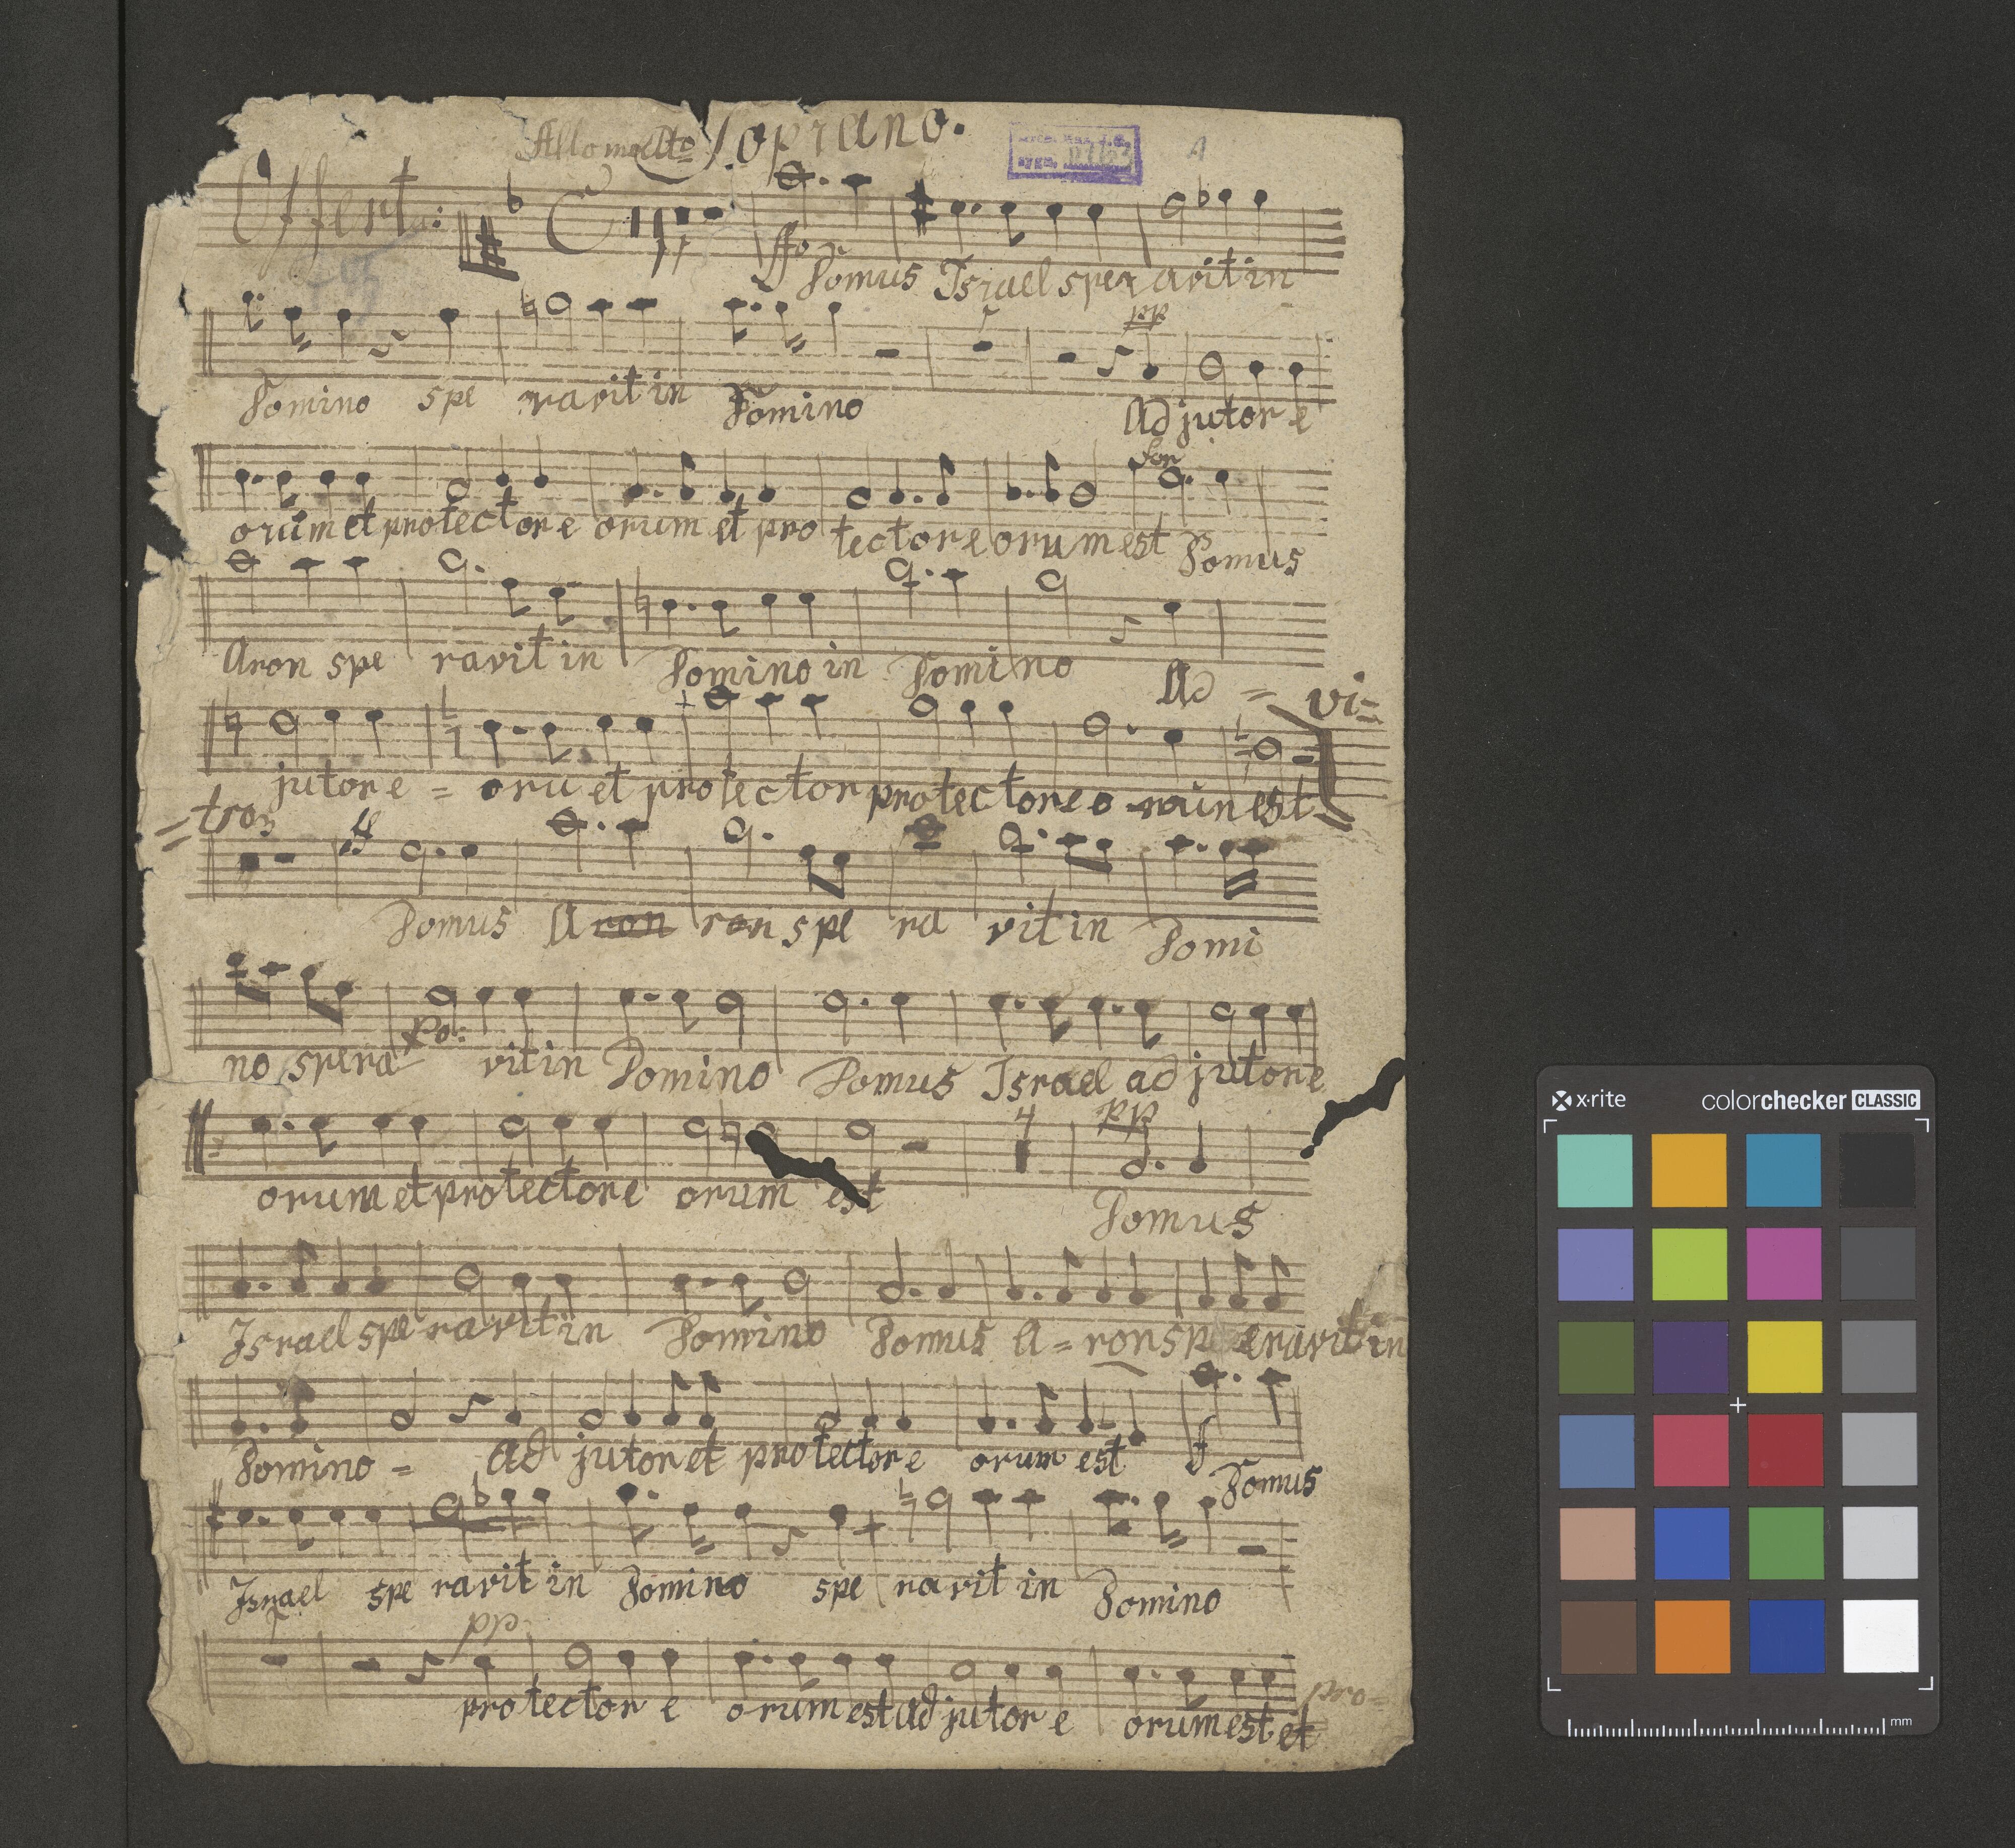 Allo molto Soprano.
A
Offert:
ffo
Domus Israel sper avit in
pp
Domino spe ravit in Domino Adjutor e
for
orum et protector e orum et pro tector e orum est Domus
Aron spe ravit in Domino in Domino Ad = vi=
jutor e = oru et protector protector e o rum est
=tro
Domus A ron ron spe ra vit in Domi
po:
no spera vit in Domino Domus Israel adjutor e
4 pp
orum et protector e orum est Domus
Israel spe ravit in Domino Domus A = ron speravit in
f
Domino = Ad jutor et protector e orum est Domus
Israel spe ravit in Domino spe ravit in Domino
pp
protector e orum est adjutor e orum est et pro=
x·rite colorchecker CLASSIC
mm